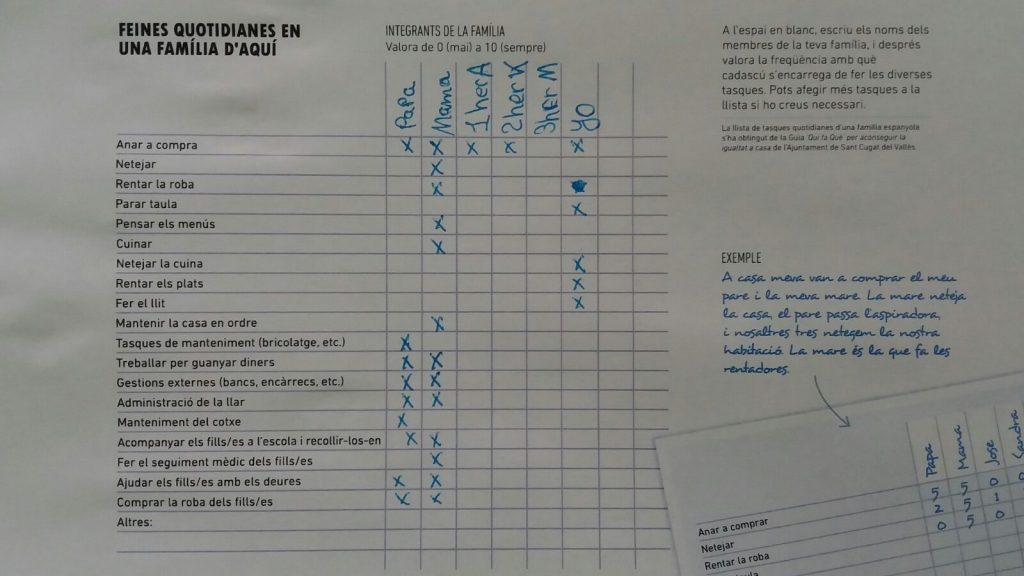 FEINES QUOTIDIANES EN
UNA FAMÍLIA D'AQUÍ
INTEGRANTS DE LA FAMÍLIA
Valora de 0 (mai) a 10 (sempre)
Papa
Mama
1 her A
2 her K
3 her M
yo
Anar a compra X X X X X
Netejar X
Rentar la roba X
Parar taula X
Pensar els menús X
Cuinar X
Netejar la cuina X
Rentar els plats X
Fer el llit X
Mantenir la casa en ordre X
Tasques de manteniment (bricolatge, etc.) X
Treballar per guanyar diners X X
Gestions externes (bancs, encàrrecs, etc.) X X
Administració de la llar X X
Manteniment del cotxe X
Acompanyar els fills/es a l'escola i recollir-los-en X X
Fer el seguiment mèdic dels fills/es X
Ajudar els fills/es amb els deures X X
Comprar la roba dels fills/es X X
Altres:
A l'espai en blanc, escriu els noms dels
membres de la teva família, i després
valora la freqüència amb què
cadascú s'encarrega de fer les diverses
tasques. Pots afegir més tasques a la
llista si ho creus necessari.
La llista de tasques quotidianes d'una família espanyola
s'ha obtingut de la Guia Qui fa Què per aconseguir la
igualtat a casa de l'Ajuntament de Sant Cugat del Vallès.
EXEMPLE
A casa meva van a comprar el meu
pare i la meva mare. La mare neteja
la casa, el pare passa l'aspiradora,
i nosaltres tres netegem la nostra
habitació. La mare és la que fa les
rentadores.
Papa
Mama
Jose
Sandra
Anar a comprar 5 5 0
Netejar 2 5 1
Rentar la roba 0 5 0